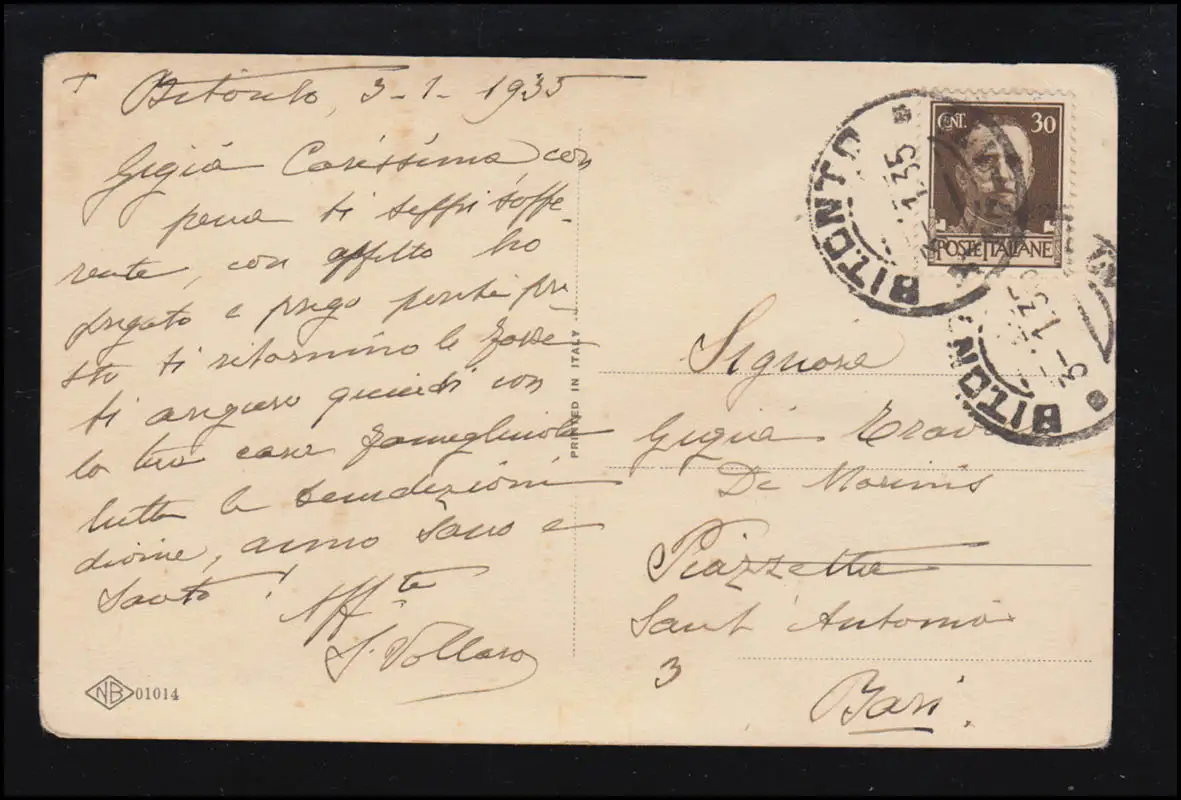 Bitonto, 3-1-1935
Gigia Carissima, con
pena ti seppi soffe-
rente, con affetto ho
pregato e prego perché pre-
sto ti ritornino le forze
ti auguro quindi con
la tua cara famegliuola
tutte le benedizioni
divine, anno sano e
santo! Aff.te
S. Vollaro
NB 01014
PRINTED IN ITALY
CENT. 30
POSTE ITALIANE
BITONTO
1.35
BITON
3-1.35
Signora
Gigia
De Marinis
Piazzetta
Sant'Antonio
3
Bari.